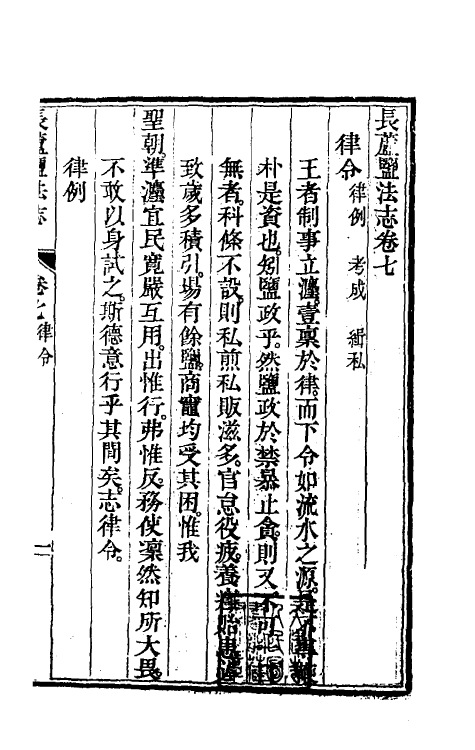 長蘆鹽法志卷七
律令 律例 考成 緝私
王者制事立灋壹稟於律而下令如流水之源
朴是資也矧鹽政乎然鹽政於禁暴止貪則又不可
無者科條不設則私煎私販滋多官怠役疲養
致歲多積引場有餘鹽商竈均受其困惟我
聖朝準灋宜民寬嚴互用出惟行弗惟反務使凜然知所大畏
不敢以身試之斯德意行乎其間矣志律令
律例
長蘆鹽法志 卷七律令 一